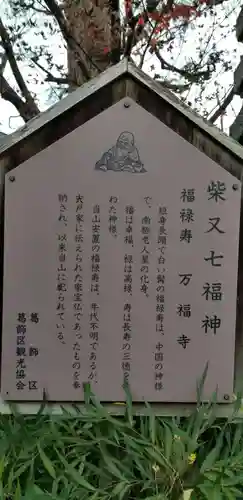 柴又七福神
福禄寿　万福寺
短身長頭で白い髯の福禄寿は、中国の神様
で、南極老人星の化身。
福は幸福、禄は高禄、寿は長寿の三徳を
与えた神様。
当山安置の福禄寿は、年代不明であるが、
大戸家に伝えられた家宝仏であったものを奉
納され、以来当山に祀られている。
葛飾区
葛飾区観光協会